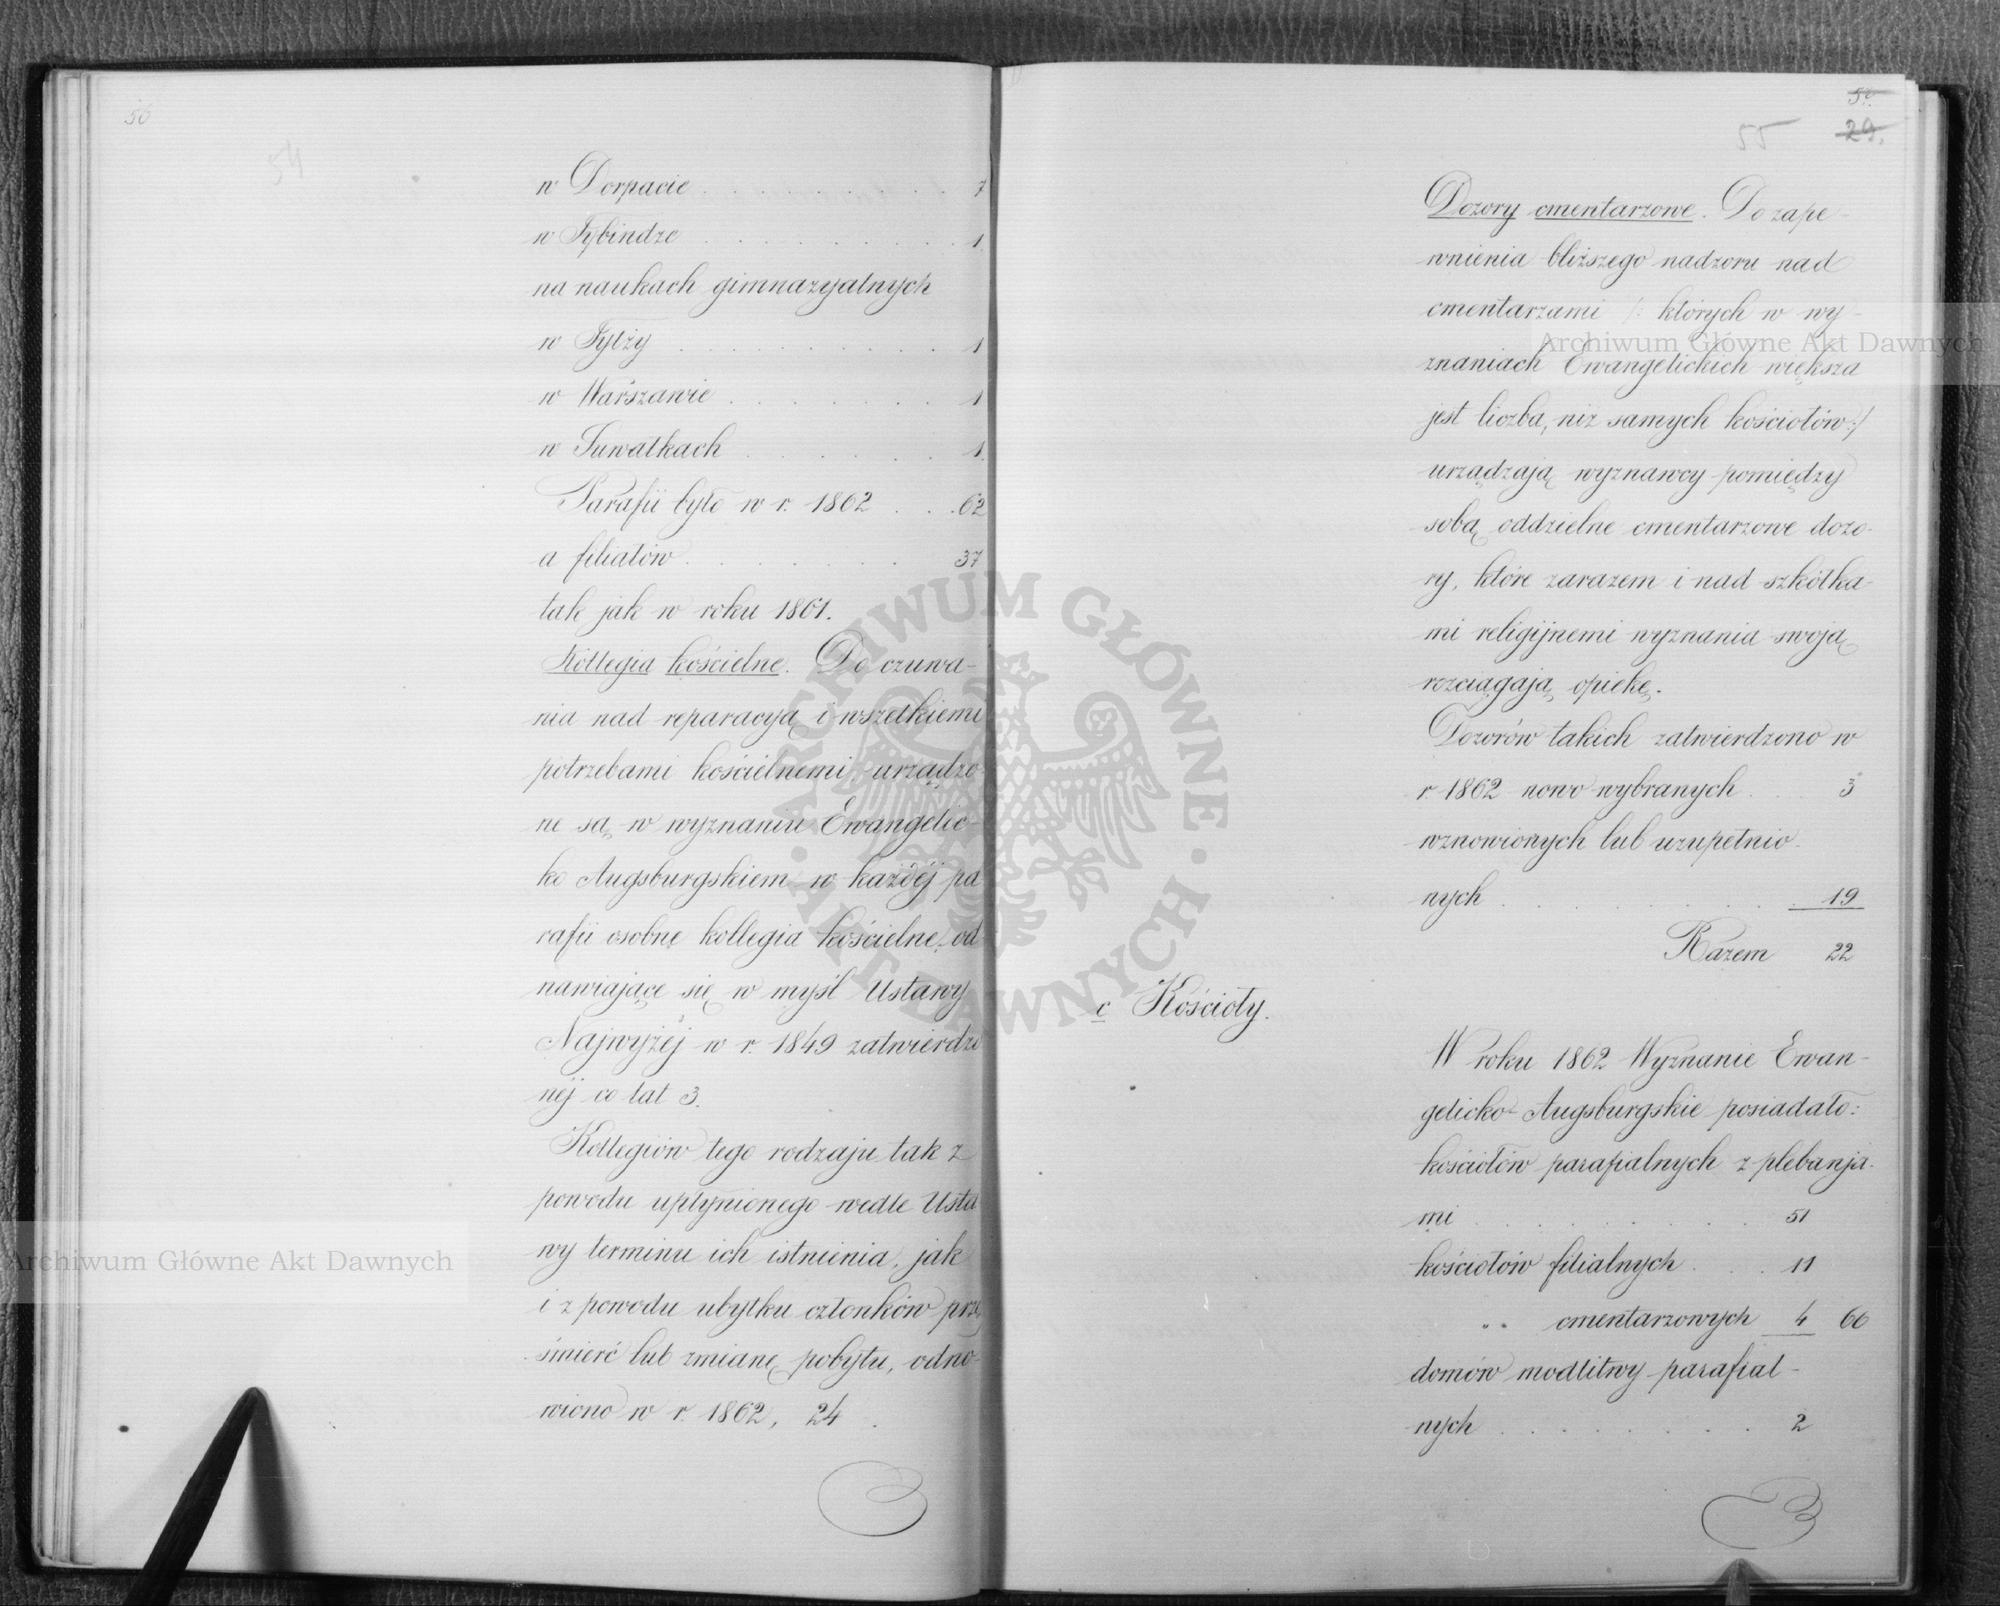 56
54
w Dorpacie . . . . . . . . . 7
w Tybindze . . . . . . . . . . 1
na naukach gimnazyalnych
w Tylży . . . . . . . . . . 1
w Warszawie . . . . . . . 1
w Suwałkach . . . . . . 1
Parafii było w r. 1862 . . . 62
a filiałów . . . . . . . . 37
tak jak w roku 1861.
Kollegia kościelne. Do czuwa-
nia nad reparacyą i wszelkiemi
potrzebami kościelnemi, urządzo
ne są w wyznaniu Ewangelic-
ko Augsburgskiem w każdéj pa
rafii osobne kollegia kościelne, od
nawiające się w myśl Ustawy
Najwyżéj w r. 1849 zatwierdzo
néj co lat 3.
Kollegiów tego rodzaju tak z
powodu upłynionego wedle Usta
wy terminu ich istnienia, jak
i z powodu ubytku członków prze
śmierć lub zmianę pobytu, odno-
wiono w r. 1862, 24.
55
29.
Dozory cmentarzowe. Do zape-
wnienia bliższego nadzoru nad
cmentarzami /: których w wy-
znaniach Ewangelickich większa
jest liczba, niż samych kościołów :/
urządzają wyznawcy pomiędzy
sobą oddzielne cmentarzowe dozo-
ry, które zarazem i nad szkółka-
mi religijnemi wyznania swoją
rozciągają opiekę.
Dozorów takich zatwierdzono w
r. 1862 nowo wybranych . . 3
wznowionych lub uzupełnio-
nych . . . . . . . . . . 19
Razem 22
c Kościoły.
W roku 1862 Wyznanie Ewan-
gelicko-Augsburgskie posiadało:
kościołów parafialnych z plebanja-
mi . . . . . . . . . . 51
kościołów filialnych . . . 11
" cmentarzowych 4 66
domów modlitwy parafial-
nych . . . . . . . . . 2
ARCHIWUM GŁÓWNE · AKT DAWNYCH ·
Archiwum Główne Akt Dawnych
Archiwum Główne Akt Dawnych